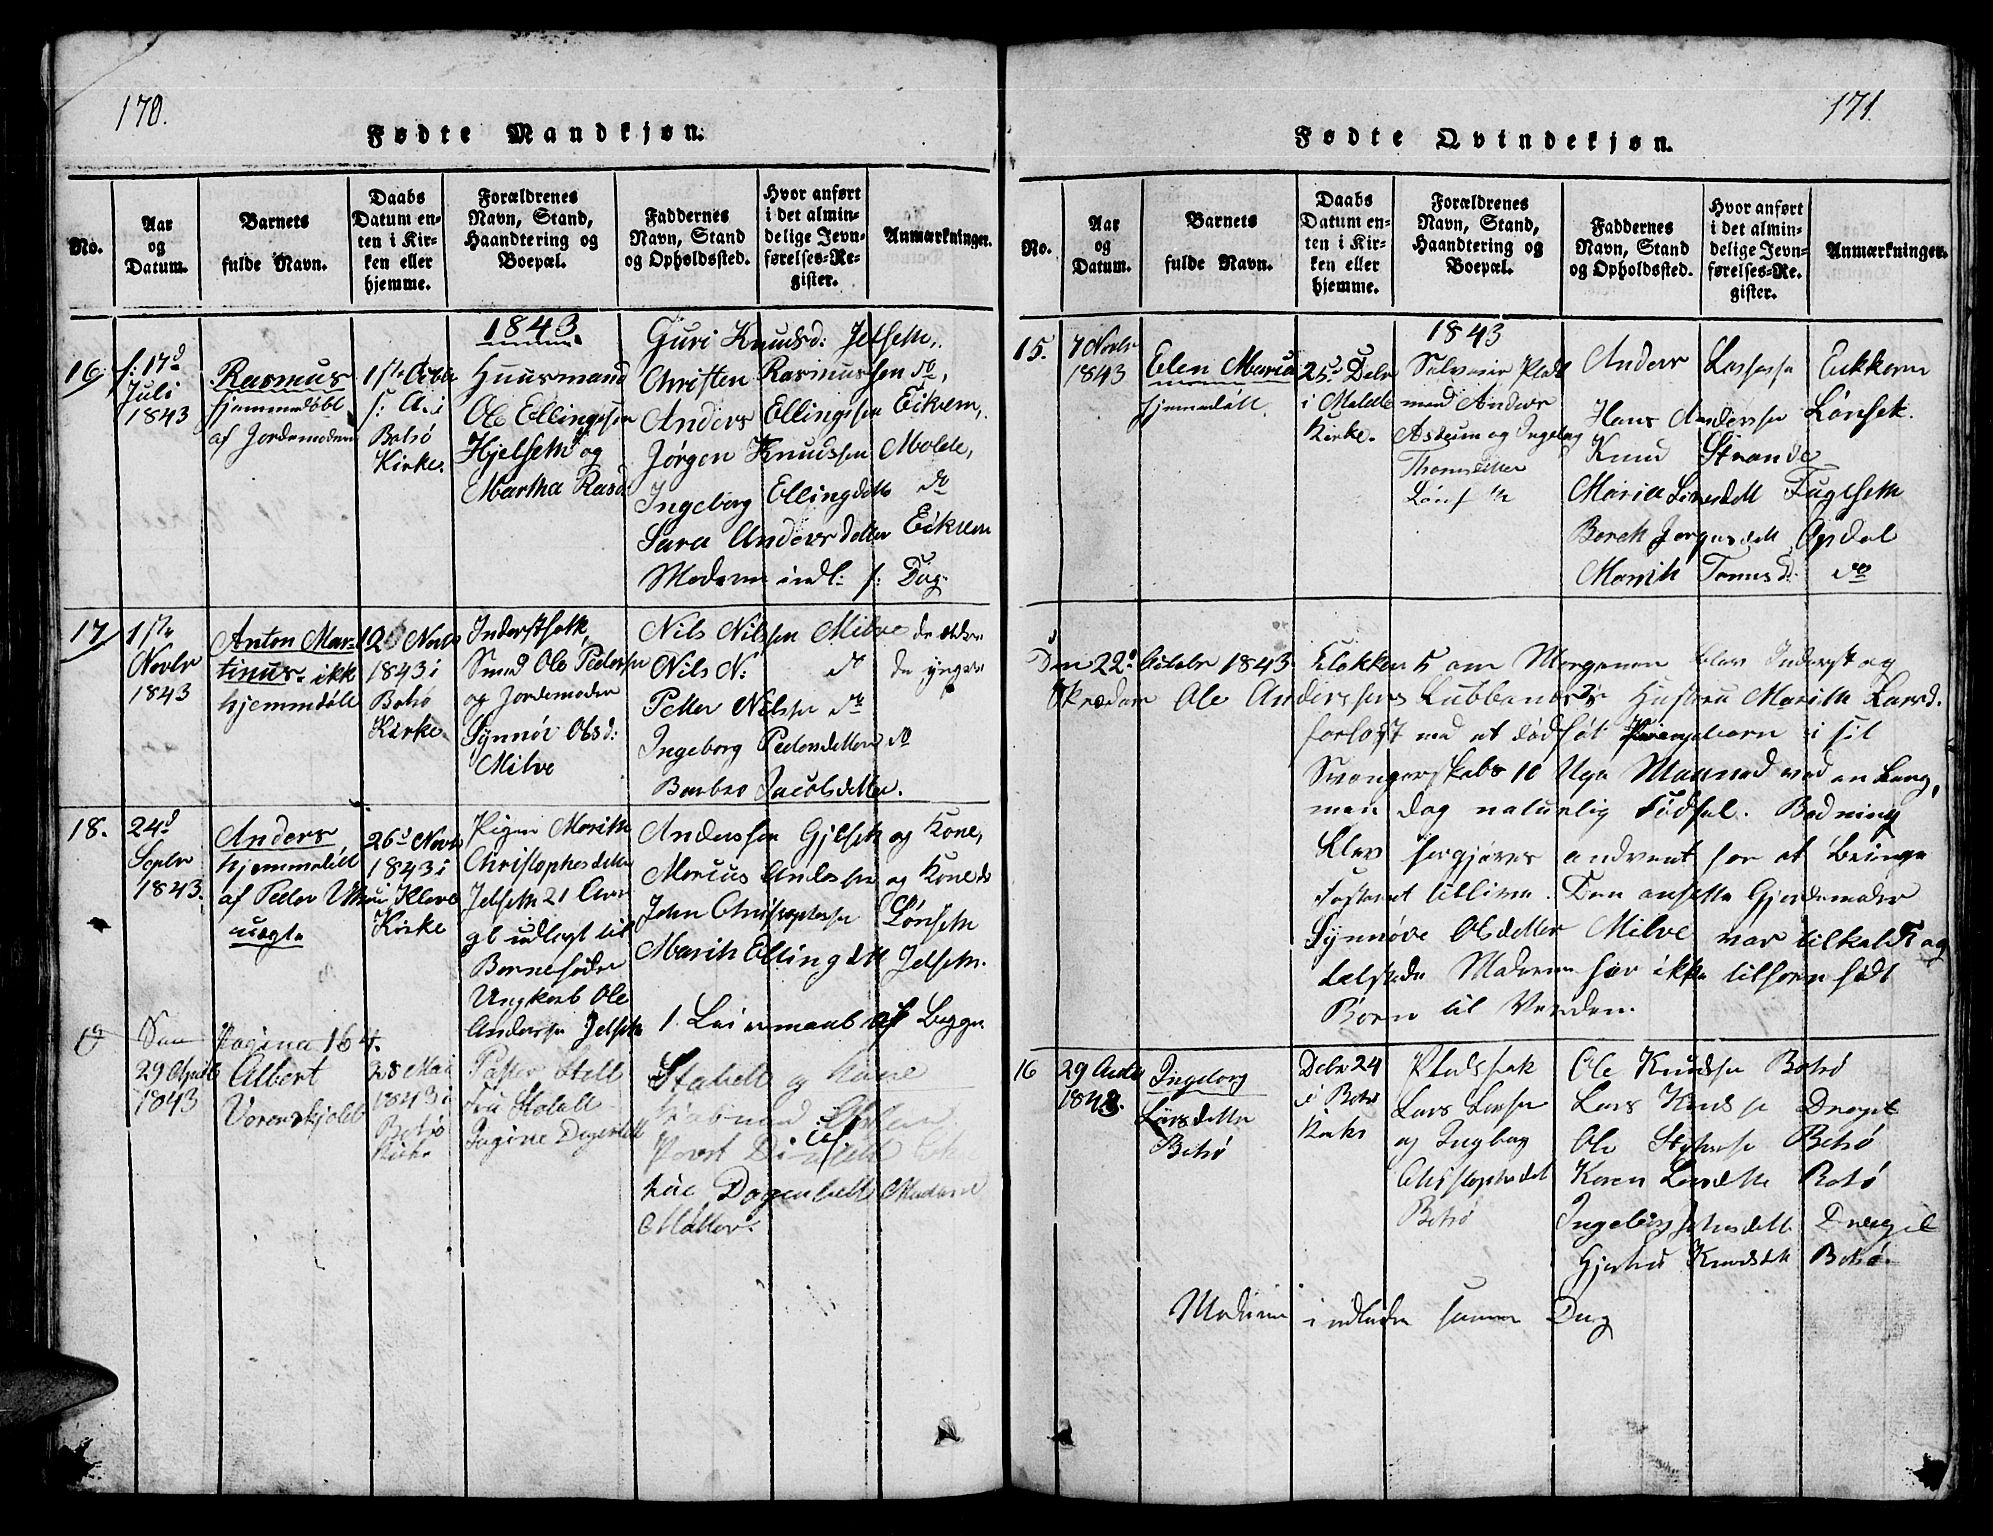 170.
Fødte Mandkjøn.
No.
Aar
og
Datum.
Barnets
fulde Navn.
Daabs
Datum en-
ten i Kir-
ken eller
hjemme.
Forældrenes
Navn, Stand,
Haandtering og
Boepæl.
Faddernes
Navn, Stand
og Opholdssted.
Hvor anført
i det almin-
delige Jevn-
førelses-Re-
gister.
Anmærkninger.
1843.
16
f: 17d
Juli
1843
Rasmus
hjemmedøbt
af Jordemoderen
1ste
Botsø
Kirke.
Huusmand
Ole Ellingsen
Hjelsem og
Martha Rasd:
Guri Knudsd: Jelsem,
Christen Rasmussen do,
Anders Ellingsen Eikrem,
Jørgen Knudsen Molde,
Ingeborg Ellingdatter do
Sara Andersdatter Eikrem
Moderen indl: s: Dag.
17
1ste
Novbr
1843
Anton Mar-
tinus ikke
hjemmdøbt
Novbr
1843 i
Botsø
Kirke
Inderstfolk
Smed Ole Pedersen
og Jordemoder
Synnøv Olsd:
Milve
Nils Nilssen Milve de ældre
Nils N: do de yngere
Petter Nilssen do
Ingeborg Pedersdatter do
Barbro Jacobsdatter.
18.
24d
Septbr
1843.
Anders
hjemmedøbt
af Peder
uægte
26d Novbr
1843 i
Kleve
Kirke
Pigen Marith
Christophersdatter
Jelsem 21 Aar
gl: udlagt til
Barnefader
Ungkarl Ole
Andersen Jelsem
Anderssen Gjelsem og Kone,
Marcus Anderssen og Kone do
John Christophersen Lønsem
Marith Ellingdatt Jelsem.
1. Leiermaal af Begge
Pagina 164.
29 April
1843
Albert
Vorenskjold
28 Mai
1843 i
Botsø
Kirke
Pastor Stoll
Fru
Stabell og Kone
Madame
Møller.
171.
Fødte Qvindekjøn.
No.
Aar
og
Datum.
Barnets
fulde Navn.
Daabs
Datum en-
ten i Kir-
ken eller
hjemme.
Forældrenes
Navn, Stand,
Haandtering og
Boepæl.
Faddernes
Navn, Stand
og Opholdssted.
Hvor anført
i det almin-
delige Jevn-
førelses-Re-
gister.
Anmærkninger.
1843
15.
7 Novbr
1843
Elen Maria
hjemmedøbt
25d Debr
i Molde
Kirke.
Selveier Plads
mand Anders
og Ingeborg
Thomasdatter
Anders
Hans Andersen Lønsek.
Knud Strande
Maria Larsdatt Fugelsem
Bereth Jørgensdatt Opdal
Marith Tomasd: do
Den 22d Octobr 1843. Klokken 5 om Morgenen blev Inderst og
Skræder Ole Anderssens Hustru Marith Larsd.
forløst med et dødfødt Drengebarn i sit
Svangerskabs 10 Uge Maaned ved en Lang,
men dog naturlig Fødsel. Redning
blev forgjeves andvent for at bringe
Fosteret til live. Den ansette Gjordemoder
Synnøve Olsdatter Milve var tilkaldt og
tilstede Moderen har ikke tilforn født
Børn til Verden.
16
29
1843.
Ingeborg
Larsdatter
Botsø
Debr 24
i Botsø
Kirke
Pladsfolk
Lars Larsen
og Ingebog
Christophersdat
Botsø
Ole Knudsen Botsø
Lars Knudse
Ole Botsø
Karen Larsdatte Botsø
Ingeborg
Knudsdtt Botsø.
Moderen indleder samme Dag